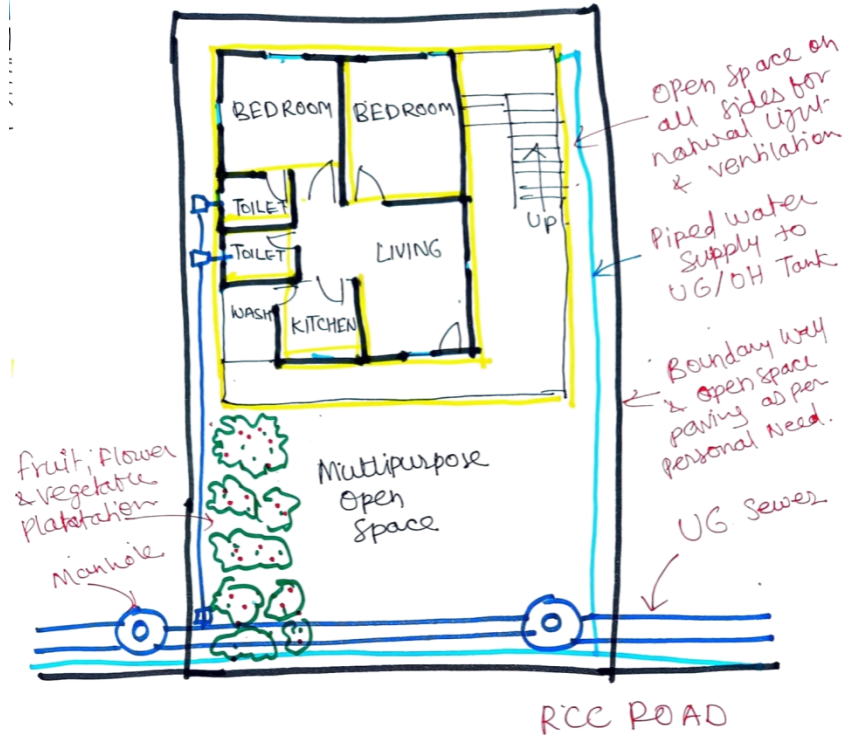 BEDROOM
BEDROOM
TOILET
TOILET
LIVING
WASH
KITCHEN
UP
Open Space on
all sides for
natural light
& ventilation
Piped water
Supply to
UG/OH Tank
Boundary Wall
& open space
paving as per
personal need.
Multipurpose
Open
Space
fruit, flower
& vegetable
Platatation
Manhole
UG Sewer
RCC ROAD